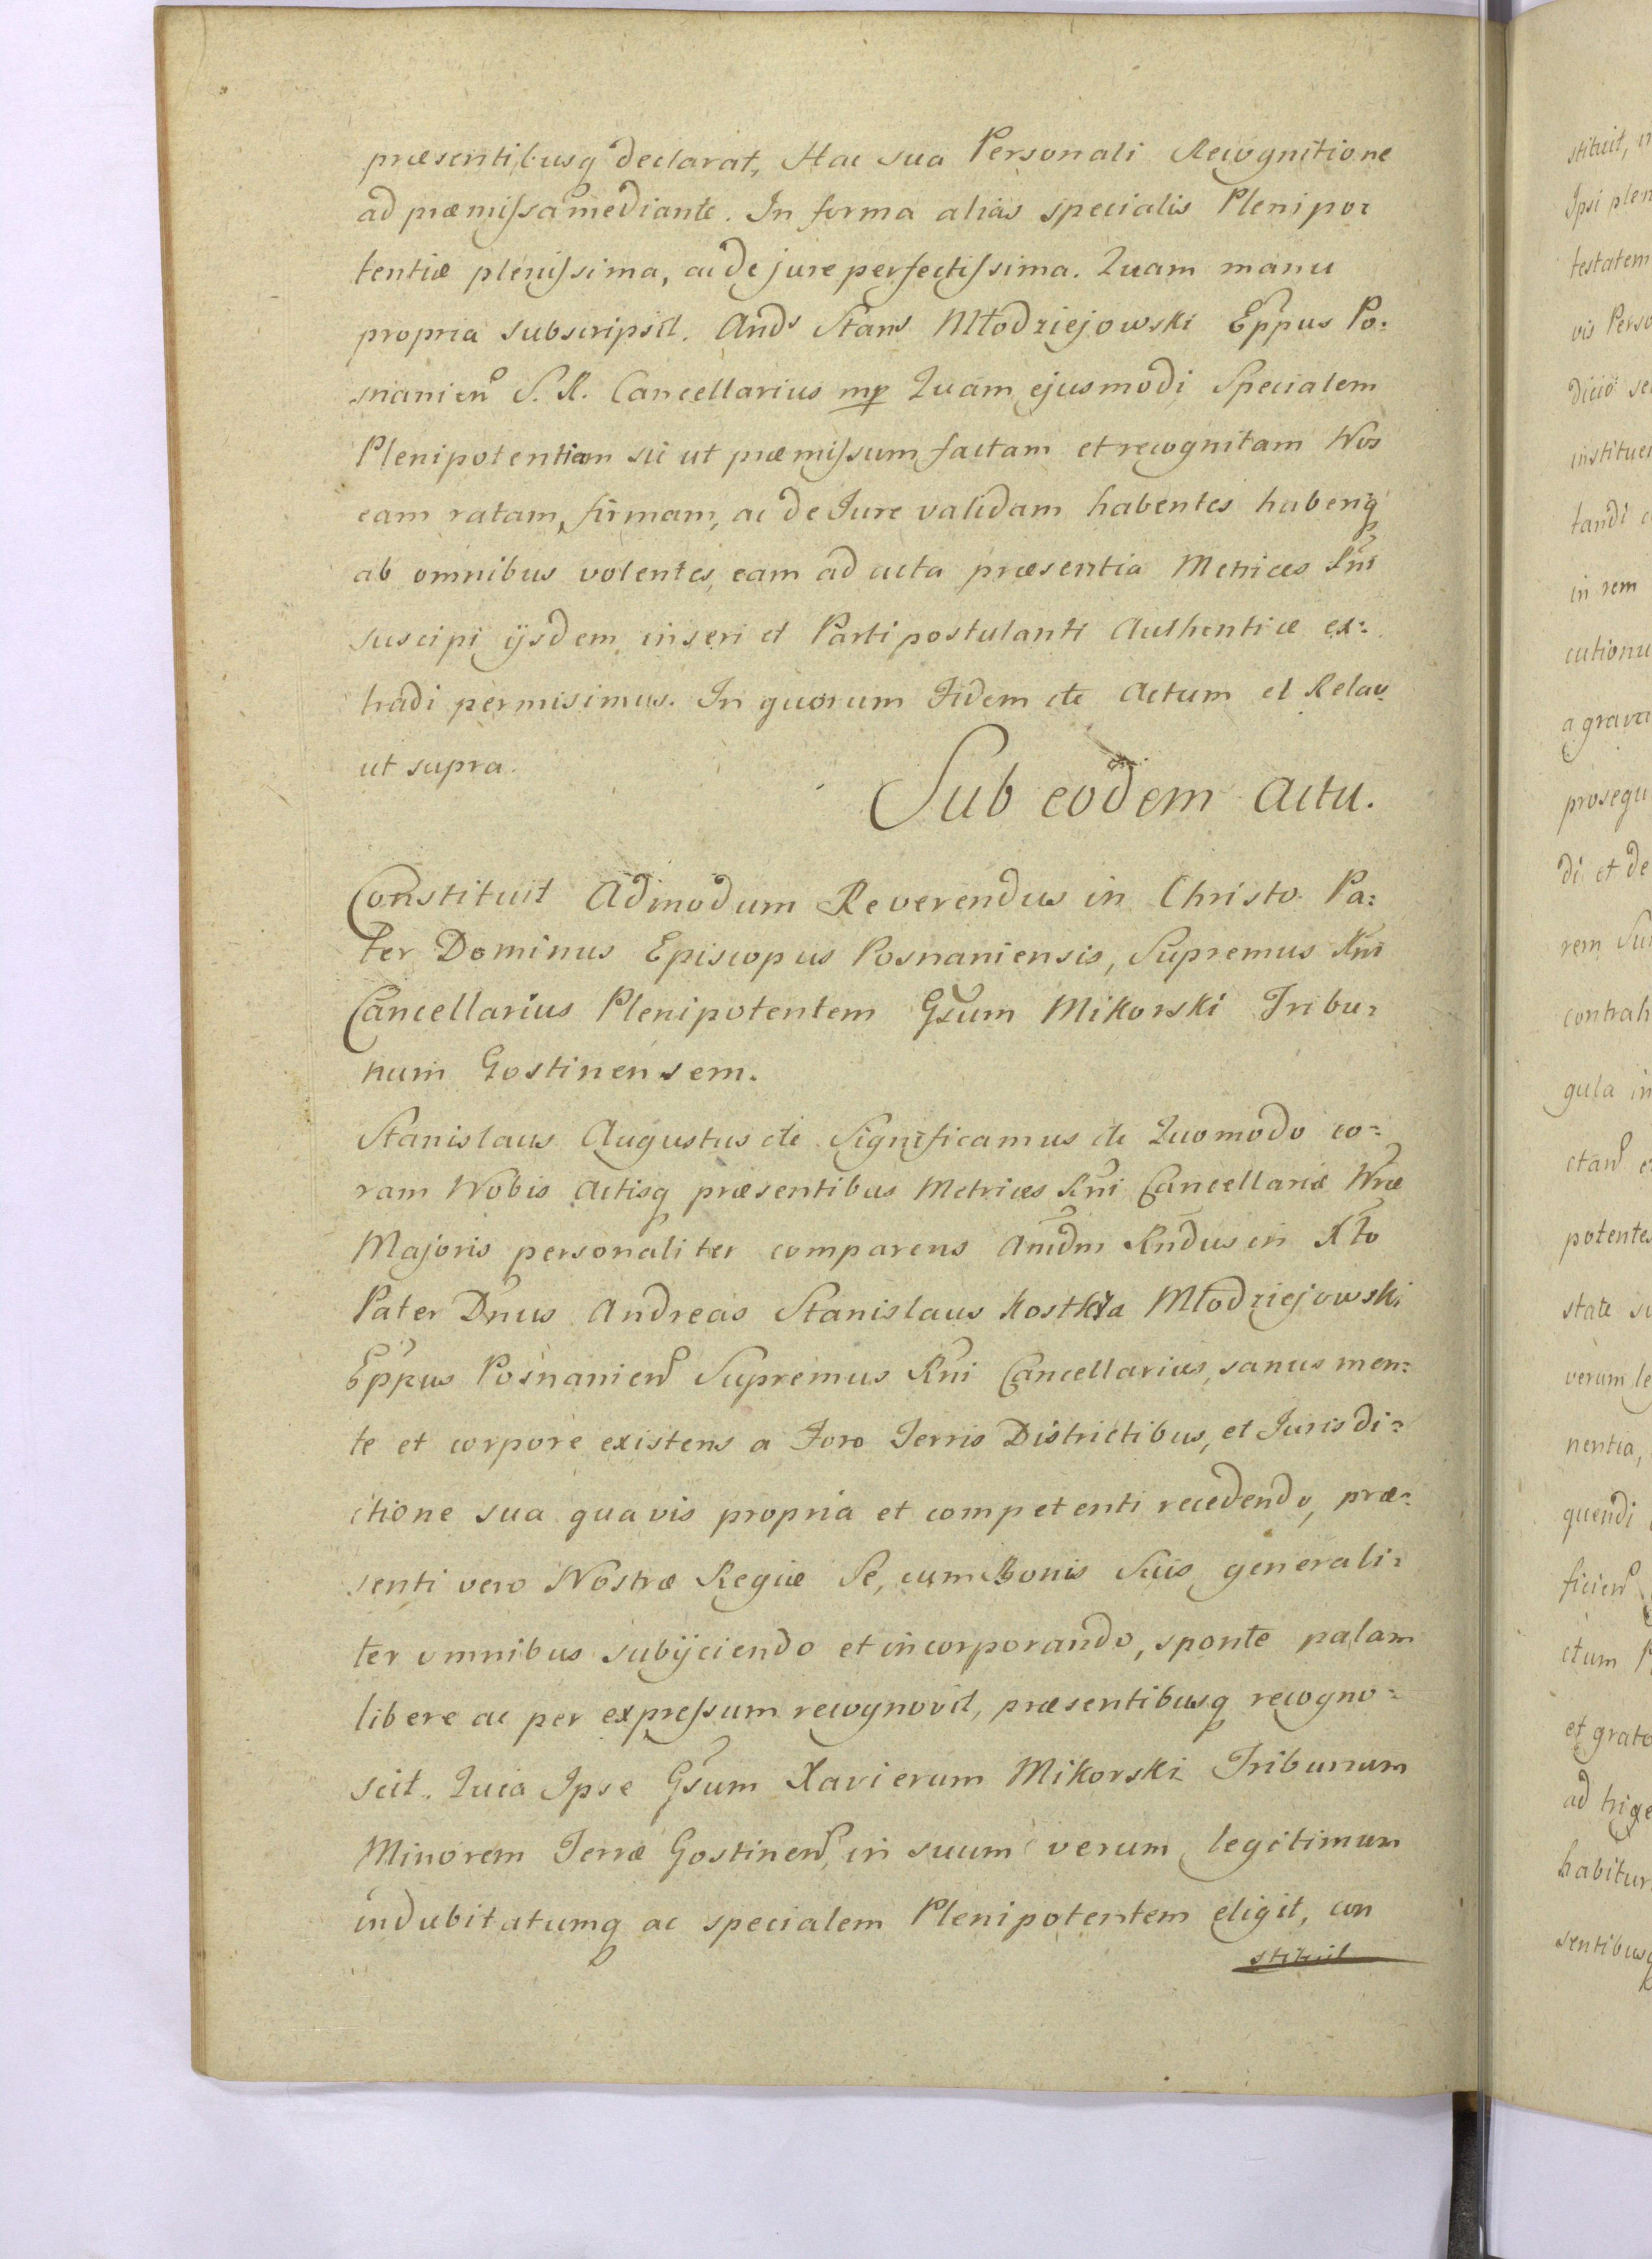 præsentibusq declarat, Hac sua Personali Recognitione
ad præmiſsa mediante. In forma alias specialis Plenipo:
tentiæ pleniſsima, ac de jure perfectiſsima. Quam manu
propria subscripsit. Ands Stans Młodziejowski Eppus Po:
snanien S. R. Cancellarius mp Quam ejusmodi Specialem
Plenipotentiam sic ut præmiſsum factam et recognitam Nos
eam ratam, firmam, ac de Jure validam habentes haberiq
ab omnibus volentes, eam ad acta præsentia Metrices Rni
suscipi ijsdem inseri et Parti postulanti Authentice ex:
tradi permisimus. In quorum Fidem etc Actum et Relao
ut supra.
Sub eodem Actu.
Constituit Admodum Reverendus in Christo Pa:
ter Dominus Episcopus Posnaniensis, Supremus Rni
Cancellarius Plenipotentem Gsum Mikorski Tribu:
num Gostinensem.
Stanislaus Augustus etc Significamus etc Quomodo co:
ram Nobis Actisq præsentibus Metrices Rni Cancellariæ Nræ
Majoris personaliter comparens Amdm Rndus in Xto
Pater Dnus Andreas Stanislaus Kostka Młodziejowski
Eppus Posnanien Supremus Rni Cancellarius, sanus men:
te et corpore existens a Foro Terris Districtibus, et Jurisdi:
ctione sua quavis propria et competenti recedendo, præ:
senti vero Nostræ Regiæ Se, cum Bonis Suis generali:
ter omnibus subijciendo et incorporando, sponte palam
libere ac per expreſsum recognovit, præsentibusq recogno:
scit. Quia Ipse Gsum Xavierum Mikorski Tribunum
Minorem Terræ Gostinen, in suum verum legitimum
indubitatumq ac specialem Plenipotentem eligit, con
stituit